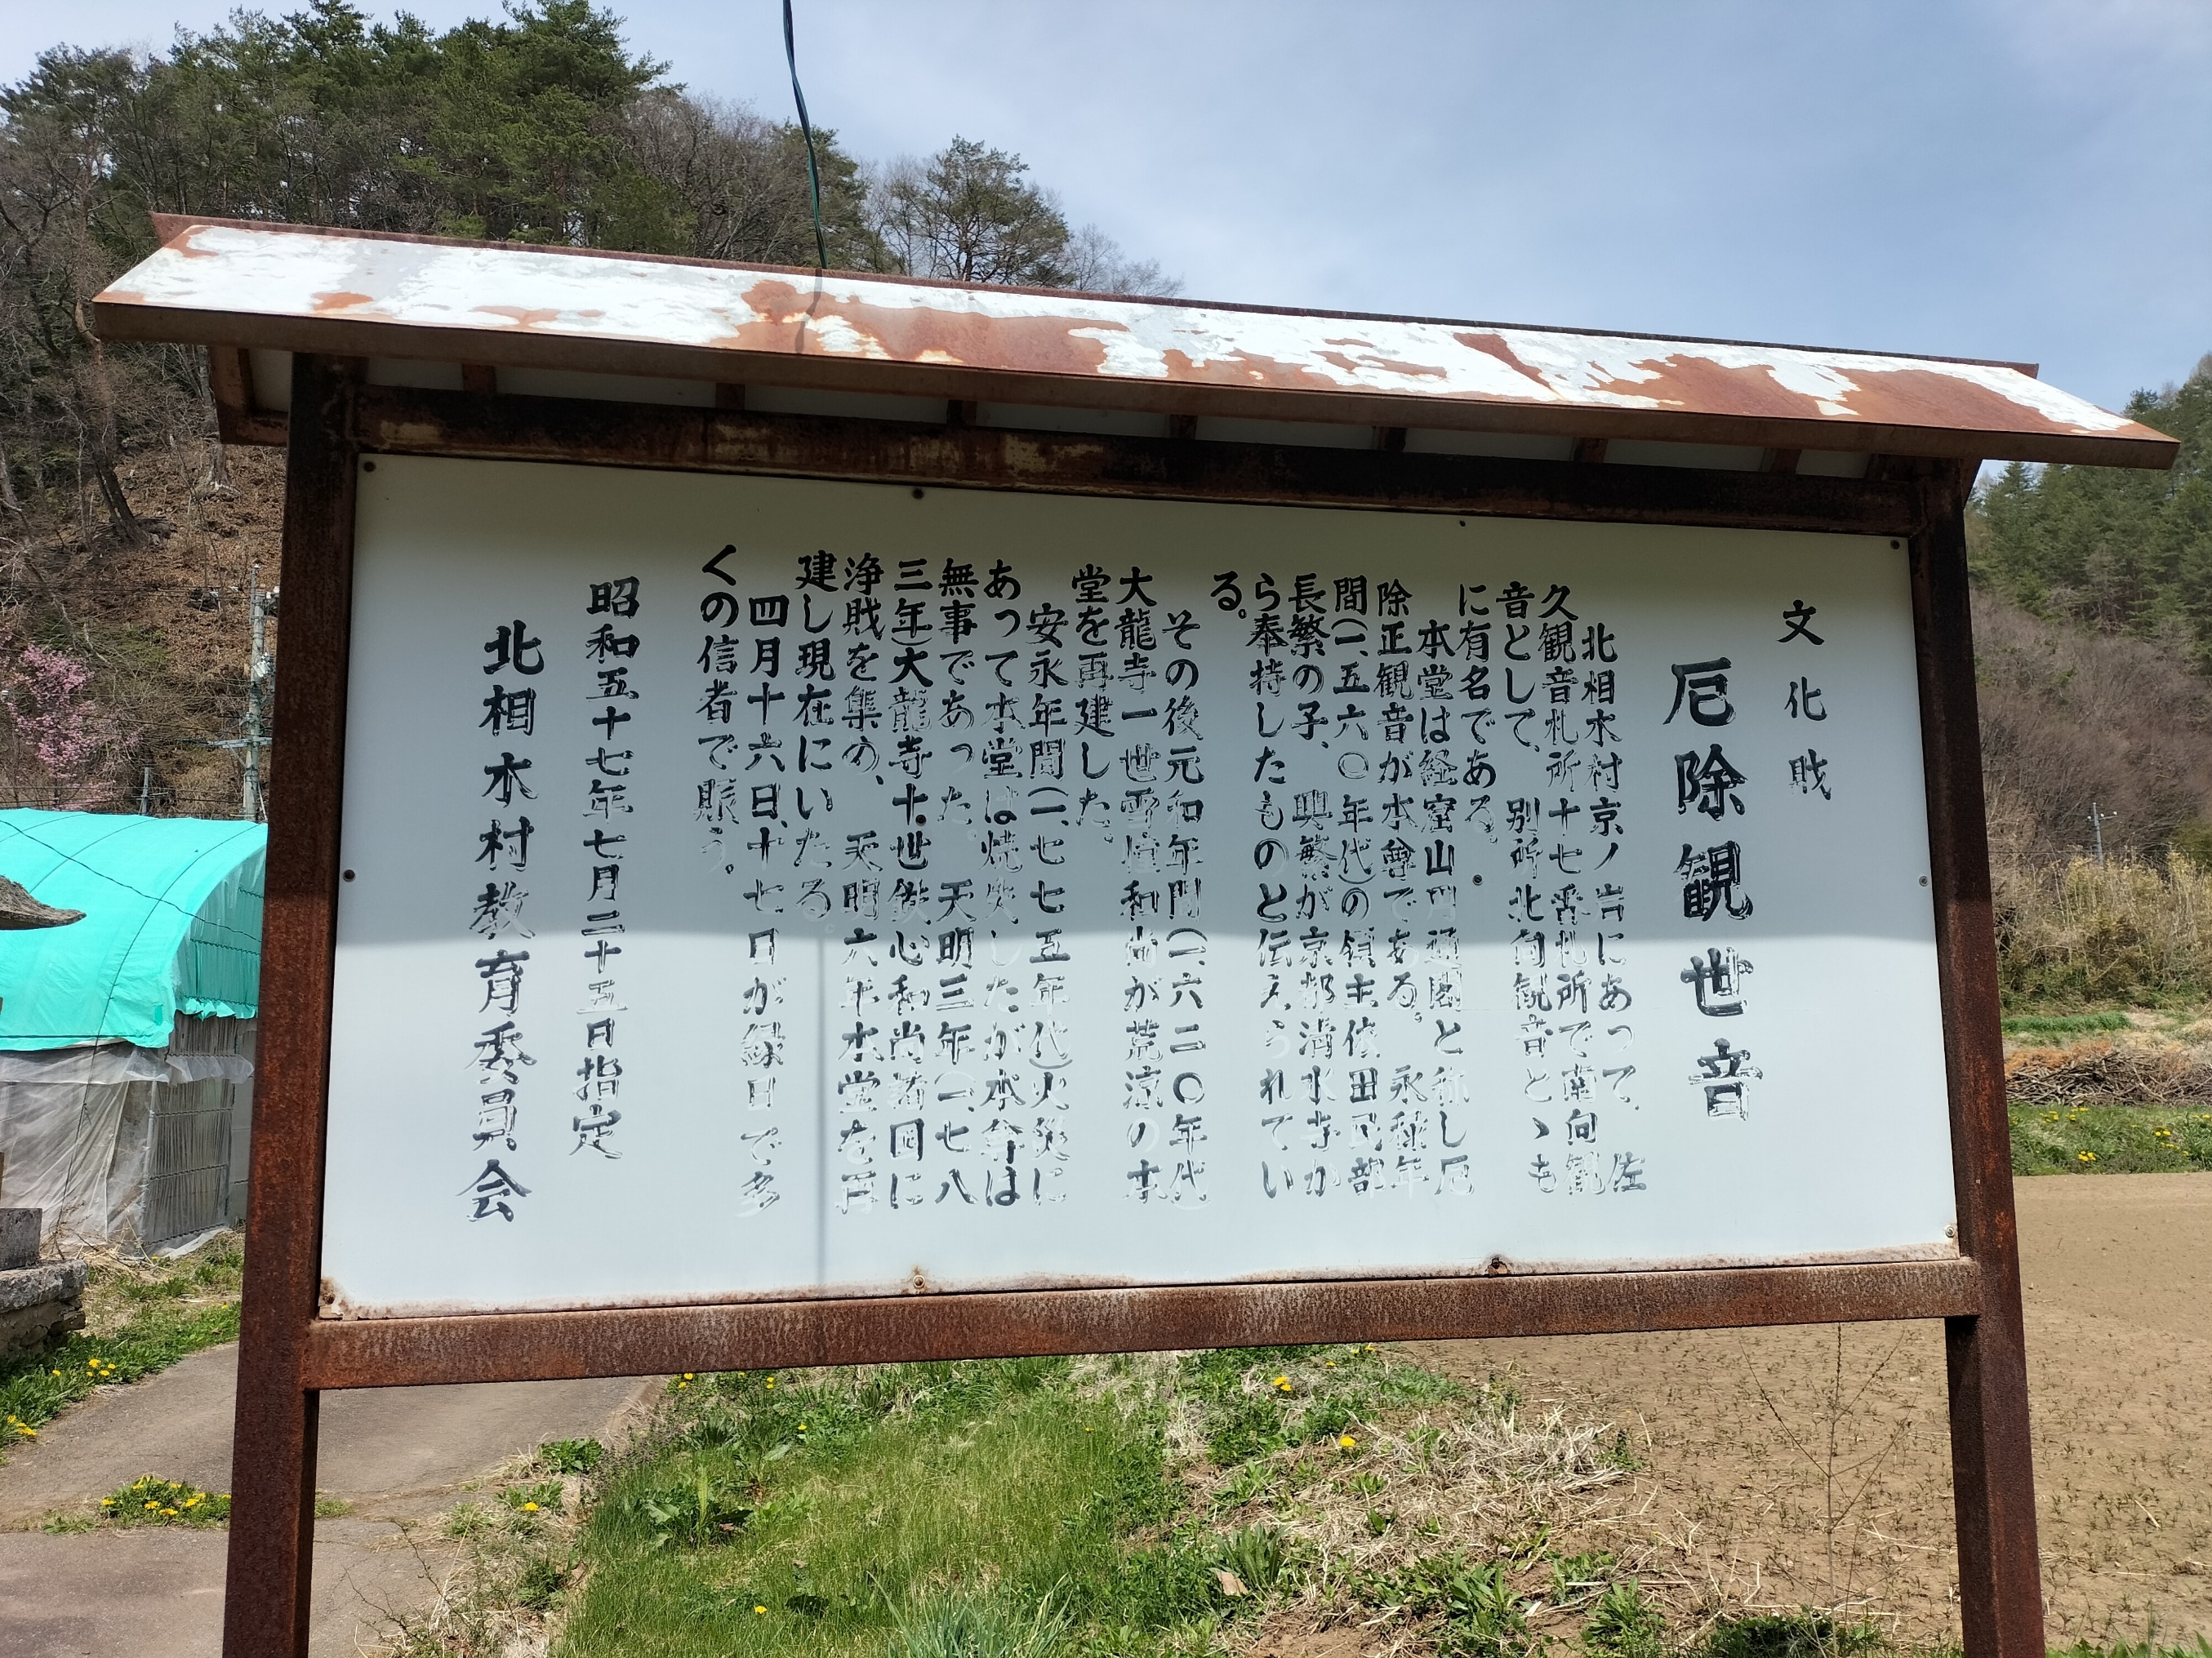 文化財
厄除観世音
北相木村京ノ岩にあって、佐
久観音札所十七番札所で南向観
音として、別所北向観音とゝも
に有名である。
本堂は経窟山円通閣と称し厄
除正観音が本尊である。永禄年
間(一、五六〇年代)の領主依田民部
長繁の子、興繁が京都清水寺か
ら奉持したものと伝えられてい
る。
その後元和年間(一、六二〇年代)
大龍寺一世雪 和尚が荒涼の本
堂を再建した。
安永年間(一、七七五年代)火災に
あって本堂は焼失したが本尊は
無事であった。天明三年(一、七八
三年)大龍寺十世鉄心和尚諸国に
浄財を集め、天明六年本堂を再
建し現在にいたる。
四月十六日、十七日が縁日で多
くの信者で賑う。
昭和五十七年七月二十五日指定
北相木村教育委員会